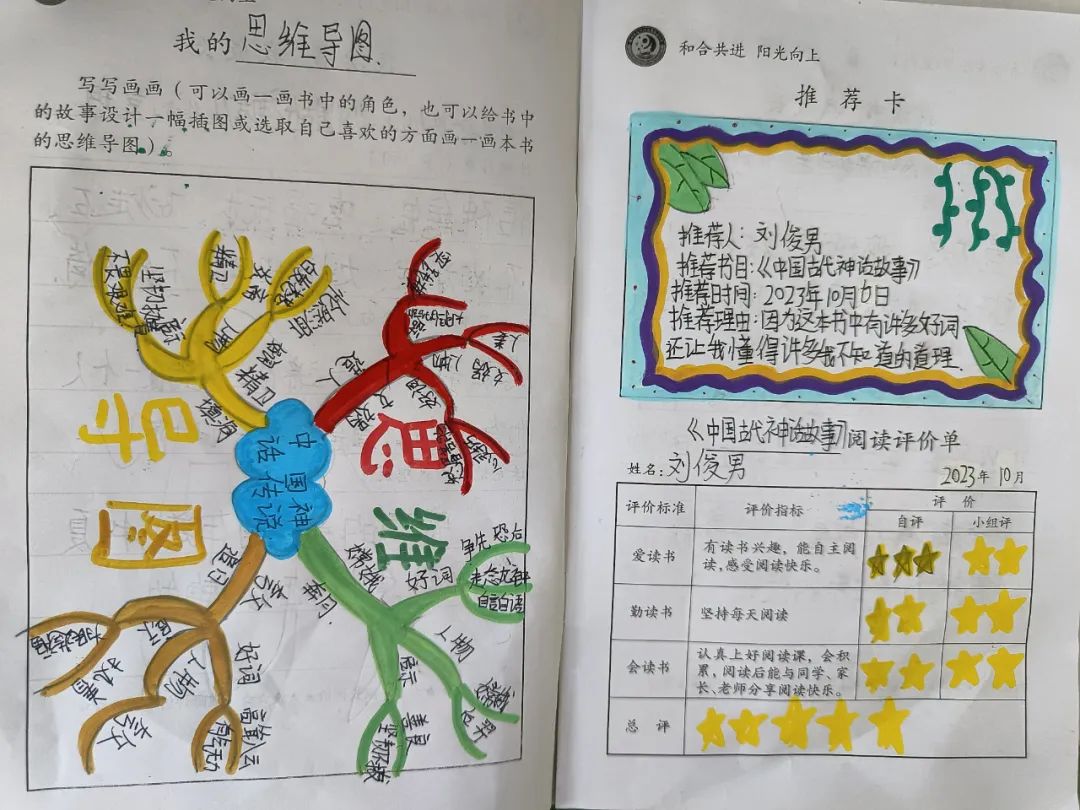 我的思维导图.
写写画画（可以画一画书中的角色，也可以给书中
的故事设计一幅插图或选取自己喜欢的方面画一画本书
的思维导图）。
思
维
导
图
中国神
话传说
精卫
填海
人物
精卫
好词
女娲
造人
人物
女娲
好词
嫦娥
奔月
好词
争先恐后
自言自语
人物
嫦娥
后羿
启示
善良
夸父
追日
启示
执着
人物
夸父
好词
高耸入云
和合共进 阳光向上
推荐卡
推荐人：刘俊男
推荐书目：《中国古代神话故事》
推荐时间：2023年10月6日
推荐理由：因为这本书中有许多好词
还让我懂得许多我不知道的道理.
《中国古代神话故事》阅读评价单
姓名：刘俊男 2023年 10月
评价标准 评价指标 评价
自评 小组评
爱读书 有读书兴趣，能自主阅
读，感受阅读快乐。
勤读书 坚持每天阅读
会读书 认真上好阅读课，会积
累，阅读后能与同学、家
长、老师分享阅读快乐。
总评